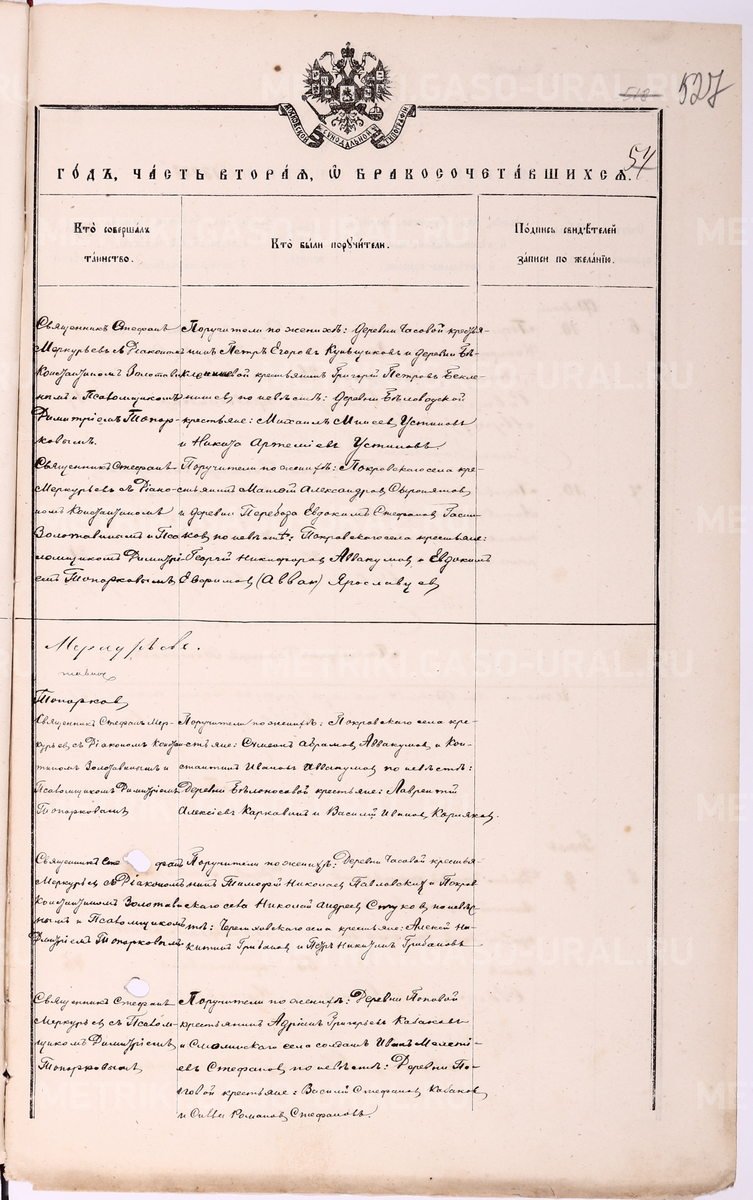 518 527
МОСКОВСКОЙ СѴНОДАЛЬНОЙ ТИПОГРАФІИ
54
ГО́ДЪ, ЧА́СТЬ ВТОРА́Я, Ѽ БРАКОСОЧЕТА́ВШИХСЯ.
Кто̀ соверша́лъ
та́инство.
Кто̀ бы́ли поручи́тели.
По́дпись свидѣ́телей
за́писи по жела́нїю.
Священникъ Стефанъ
Меркурьевъ съ Діакономъ
Константиномъ Золотави-
нымъ и Псаломщикомъ
Димитріемъ Топор-
ковымъ.
Поручители по женихѣ: деревни Часовой крестья-
нинъ Петръ Егоровъ Кувщиковъ и деревни Бѣ-
крестьянинъ Григорій Петровъ Бекле-
нищев, по невѣстѣ: деревни Бѣловодской
крестьяне: Михаилъ Моисеев Устиновъ
и Никита Артеміевъ Устиновъ.
Священникъ Стефанъ
Меркурьевъ съ Діако-
номъ Константиномъ
Золотавинымъ и Пса-
ломщикомъ Димитрі-
емъ Топорковымъ
Поручители по женихѣ: Покровскаго села кре-
стьянинъ Матѳій Александровъ Сыропятов
и деревни Перебора Евдокимъ Стефановъ
по невѣстѣ: Покровскаго села крестьяне:
Георгій Никифоров Аввакумов и Евдокимъ
Ефримовъ (Авван) Ярославцев
Меркурьевъ.
Топорков
Священникъ Стефанъ Мер-
курьев, съ Діакономъ Констан-
тиномъ Золотавинымъ и
Псаломщикомъ Димитріемъ
Топорковымъ
Поручители по женихѣ: Покровскаго села кре-
стьяне: Симеонъ Абрамовъ Аввакумов и Кон-
стантинъ Ивановъ Аввакумов по невѣстѣ:
Деревни Бѣлоносовой крестьяне: Лаврентій
Алексіевъ Каркавинъ и Василій Ивановъ Коряков.
Священникъ Стефанъ
Меркурьев съ Діакономъ
Константиномъ Золотави-
нымъ и Псаломщикомъ
Димитріемъ Топорковымъ
Поручители по женихѣ: Деревни Часовой крестья-
нинъ Тимофей Николаев Павловскихъ и Покров-
скаго села Николай Андреев Стуков, по невѣс-
тѣ: Черемховскаго села крестьяне: Алексѣй Ни-
китинъ Грибанов и Петръ Никитинъ Грибановъ
Священникъ Стефанъ
Меркурьев съ Псалом-
щикомъ Димитріемъ
Топорковымъ
Поручители по женихѣ: Деревни Поповой
крестьянинъ Адріанъ Григорьевъ Кабаковъ
и Смолинскаго села солдатъ Иванъ Мелеті-
евъ Стефановъ по невѣстѣ: Деревни По-
повой крестьяне: Василій Стефановъ Кабаков
и Савва Романовъ Стефановъ.
METRIKI.GASO-URAL.RU